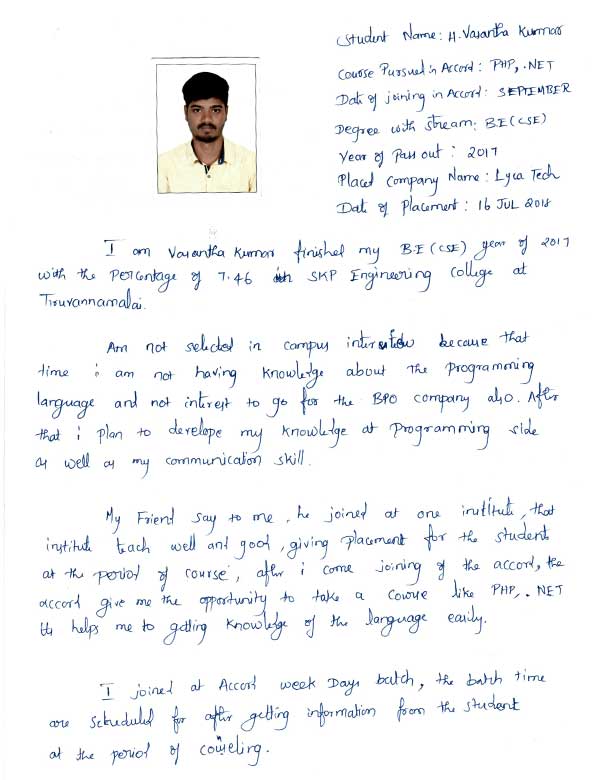 Student Name: H. Vasantha Kumar
Course Pursued in Accord: PHP, .NET
Date of joining in Accord: SEPTEMBER
Degree with stream: B.E (CSE)
Year of Pass out: 2017
Placed Company Name: Lyca Tech
Date of Placement: 16 JUL 2018
I am Vasantha Kumar finished my B.E (CSE) year of 2017
with the Percentage of 7.46 in SKP Engineering College at
Tiruvannamalai.
Am not selected in campus interview because that
time i am not having knowledge about the Programming
language and not interest to go for the BPO company also. After
that i plan to develope my knowledge at Programming side
as well as my communication skill.
My Friend say to me, he joined at one institute, that
institute teach well and good, giving placement for the student
at the period of course, after i come joining of the accord, the
accord give me the opportunity to take a course like PHP, .NET
its helps me to getting knowledge of the language easily.
I joined at Accord week Days batch, the batch time
are scheduled for after getting information from the student
at the period of counseling.